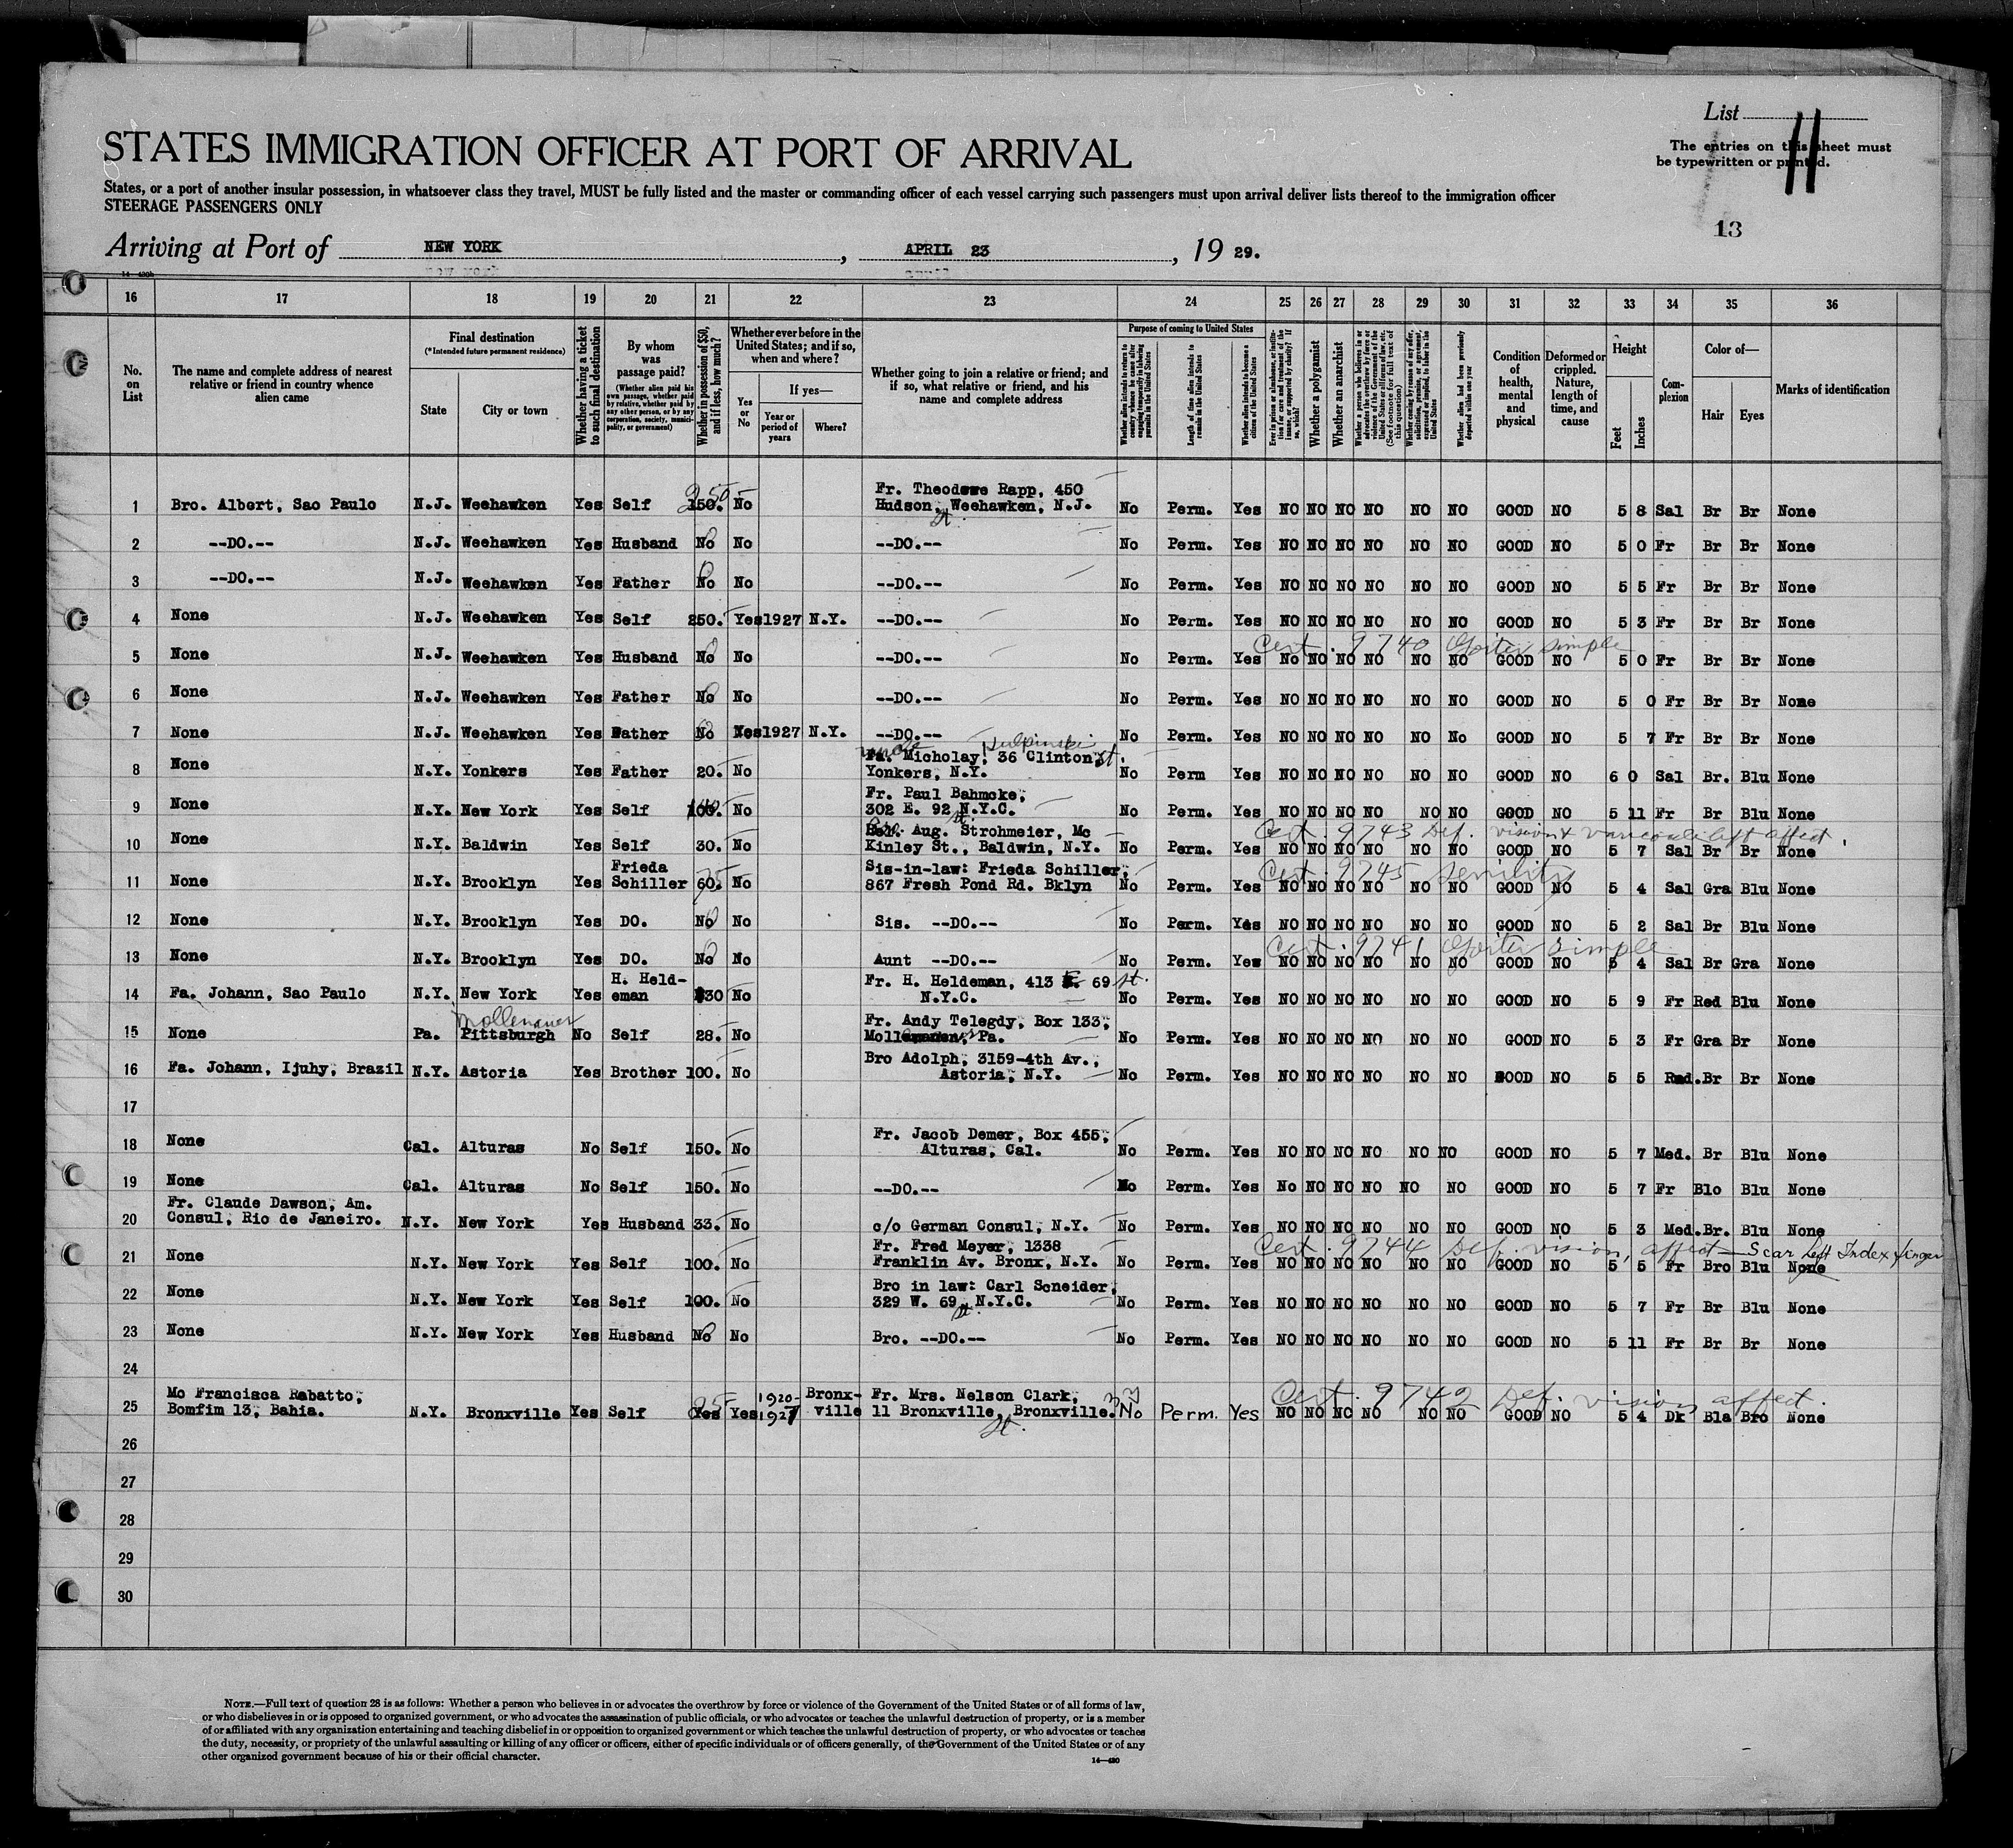 List
11
The entries on this sheet must
be typewritten or printed.
13
STATES IMMIGRATION OFFICER AT PORT OF ARRIVAL
States, or a port of another insular possession, in whatsoever class they travel, MUST be fully listed and the master or commanding officer of each vessel carrying such passengers must upon arrival deliver lists thereof to the immigration officer
STEERAGE PASSENGERS ONLY
Arriving at Port of NEW YORK, APRIL 23, 19 29.
16 17 18 19 20 21 22 23 24 25 26 27 28 29 30 31 32 33 34 35 36
No. on List
The name and complete address of nearest relative or friend in country whence alien came
Final destination
(*Intended future permanent residence)
State
City or town
Whether having a ticket to such final destination
By whom was passage paid?
(Whether alien paid his own passage, whether paid by relative, whether paid by any other person, or by any corporation, society, municipality, or government)
Whether in possession of $50, and if less, how much?
Whether ever before in the United States; and if so, when and where?
Yes or No
If yes—
Year or period of years
Where?
Whether going to join a relative or friend; and if so, what relative or friend, and his name and complete address
Purpose of coming to United States
Whether alien intends to return to country whence he came after engaging temporarily in laboring pursuits in the United States
Length of time alien intends to remain in the United States
Whether alien intends to become a citizen of the United States
Ever in prison or almshouse, or institution for care and treatment of the insane, or supported by charity? If so, which?
Whether a polygamist
Whether an anarchist
Whether a person who believes in or advocates the overthrow by force or violence of the Government of the United States or all forms of law, etc. (See footnote for full text of this question)
Whether coming by reason of any offer, solicitation, promise, or agreement, expressed or implied, to labor in the United States
Whether alien had been previously deported within one year
Condition of health, mental and physical
Deformed or crippled. Nature, length of time, and cause
Height
Feet
Inches
Complexion
Color of—
Hair
Eyes
Marks of identification
1 Bro. Albert, Sao Paulo N.J. Weehawken Yes Self 150. 250 No Fr. Theodore Rapp, 450
Hudson, Weehawken, N.J. No Perm. Yes NO NO NO NO NO NO GOOD NO 5 8 Sal Br Br None
St.
2 --DO.-- N.J. Weehawken Yes Husband No 0 No --DO.-- No Perm. Yes NO NO NO NO NO NO GOOD NO 5 0 Fr Br Br None
3 --DO.-- N.J. Weehawken Yes Father No 0 No --DO.-- No Perm. Yes NO NO NO NO NO NO GOOD NO 5 5 Fr Br Br None
4 None N.J. Weehawken Yes Self 250. Yes 1927 N.Y. --DO.-- No Perm. Yes NO NO NO NO NO NO GOOD NO 5 3 Fr Br Br None
Cert. 9740 Goiter simple
5 None N.J. Weehawken Yes Husband No 0 No --DO.-- No Perm. Yes No NO NO NO NO NO GOOD NO 5 0 Fr Br Br None
6 None N.J. Weehawken Yes Father No 0 No --DO.-- No Perm. Yes NO NO NO NO NO NO GOOD NO 5 0 Fr Br Br None
7 None N.J. Weehawken Yes Father No 0 Yes 1927 N.Y. --DO.-- No Perm. Yes NO NO NO NO NO No GOOD NO 5 7 Fr Br Br None
uncle
8 None N.Y. Yonkers Yes Father 20. No Fa. Micholay, 36 Clinton St.
Yonkers, N.Y. No Perm Yes NO NO NO NO NO NO GOOD NO 6 0 Sal Br. Blu None
9 None N.Y. New York Yes Self 100. No Fr. Paul Bahmcke,
302 E. 92 N.Y.C. No Perm. Yes NO NO NO NO NO NO GOOD NO 5 11 Fr Br Blu None
St.
Bro. Cert. 9743 Def. vision & varicocele left affect.
10 None N.Y. Baldwin Yes Self 30. No Aug. Strohmeier, Mc
Kinley St., Baldwin, N.Y. No Perm. Yes NO NO NO NO NO NO GOOD NO 5 7 Sal Br Br None
Cert. 9745 Senility
11 None N.Y. Brooklyn Yes Frieda Schiller 60. No Sis-in-law: Frieda Schiller,
867 Fresh Pond Rd. Bklyn No Perm. Yes NO NO NO NO NO NO GOOD NO 5 4 Sal Gra Blu None
12 None N.Y. Brooklyn Yes DO. No 0 No Sis. --DO.-- No Perm. Yes NO NO NO NO NO NO GOOD NO 5 2 Sal Br Blu None
Cert. 9741 Goiter simple
13 None N.Y. Brooklyn Yes DO. No 0 No Aunt --DO.-- No Perm. Yes NO NO NO NO NO NO GOOD NO 5 4 Sal Br Gra None
14 Fa. Johann, Sao Paulo N.Y. New York Yes H. Held-eman $30 No Fr. H. Heldeman, 413 E. 69 St.
N.Y.C. No Perm. Yes NO NO NO NO NO NO GOOD NO 5 9 Fr Red Blu None
Mollenauer
15 None Pa. Pittsburgh No Self 28. No Fr. Andy Telegdy, Box 133,
Pa. No Perm. Yes NO NO NO NO NO NO GOOD NO 5 3 Fr Gra Br None
16 Fa. Johann, Ijuhy, Brazil N.Y. Astoria Yes Brother 100. No Bro Adolph, 3159-4th Av.,
Astoria, N.Y. No Perm. Yes NO NO NO NO NO NO GOOD NO 5 5 Red. Br Br None
17
18 None Cal. Alturas No Self 150. No Fr. Jacob Demer, Box 455,
Alturas, Cal. No Perm. Yes NO NO NO NO NO NO GOOD NO 5 7 Med. Br Blu None
19 None Cal. Alturas No Self 150. No --DO.-- No Perm. Yes No NO NO NO NO NO GOOD NO 5 7 Fr Blo Blu None
20 Fr. Claude Dawson, Am.
Consul, Rio de Janeiro. N.Y. New York Yes Husband 33. No c/o German Consul, N.Y. No Perm. Yes NO NO NO NO NO NO GOOD NO 5 3 Med. Br. Blu None
Cert. 9744 Def. vision, affect — Scar left Index finger
21 None N.Y. New York Yes Self 100. No Fr. Fred Meyer, 1338
Franklin Av. Bronx, N.Y. No Perm. Yes NO NO NO NO NO NO GOOD NO 5 5 Fr Bro Blu None
22 None N.Y. New York Yes Self 100. No Bro in law: Carl Scneider,
329 W. 69 N.Y.C. No Perm. Yes NO NO NO NO NO NO GOOD NO 5 7 Fr Br Blu None
St.
23 None N.Y. New York Yes Husband No 0 No Bro. --DO.-- No Perm. Yes NO NO NO NO NO NO GOOD NO 5 11 Fr Br Br None
24
Cert. 9742 Def. vision, affect.
25 Mo Francisca Rabatto,
Bomfim 13, Bahia. N.Y. Bronxville Yes Self Yes Yes 1920-1927 Bronx-ville Fr. Mrs. Nelson Clark,
11 Bronxville, Bronxville. No Perm. Yes NO NO NO NO NO NO GOOD NO 5 4 Dk Bla Bro None
St.
26
27
28
29
30
NOTE.—Full text of question 28 is as follows: Whether a person who believes in or advocates the overthrow by force or violence of the Government of the United States or of all forms of law,
or who disbelieves in or is opposed to organized government, or who advocates the assassination of public officials, or who advocates or teaches the unlawful destruction of property, or is a member
of or affiliated with any organization entertaining and teaching disbelief in or opposition to organized government or which teaches the unlawful destruction of property, or who advocates or teaches
the duty, necessity, or propriety of the unlawful assaulting or killing of any officer or officers, either of specific individuals or of officers generally, of the Government of the United States or of any
other organized government because of his or their official character.
14—430